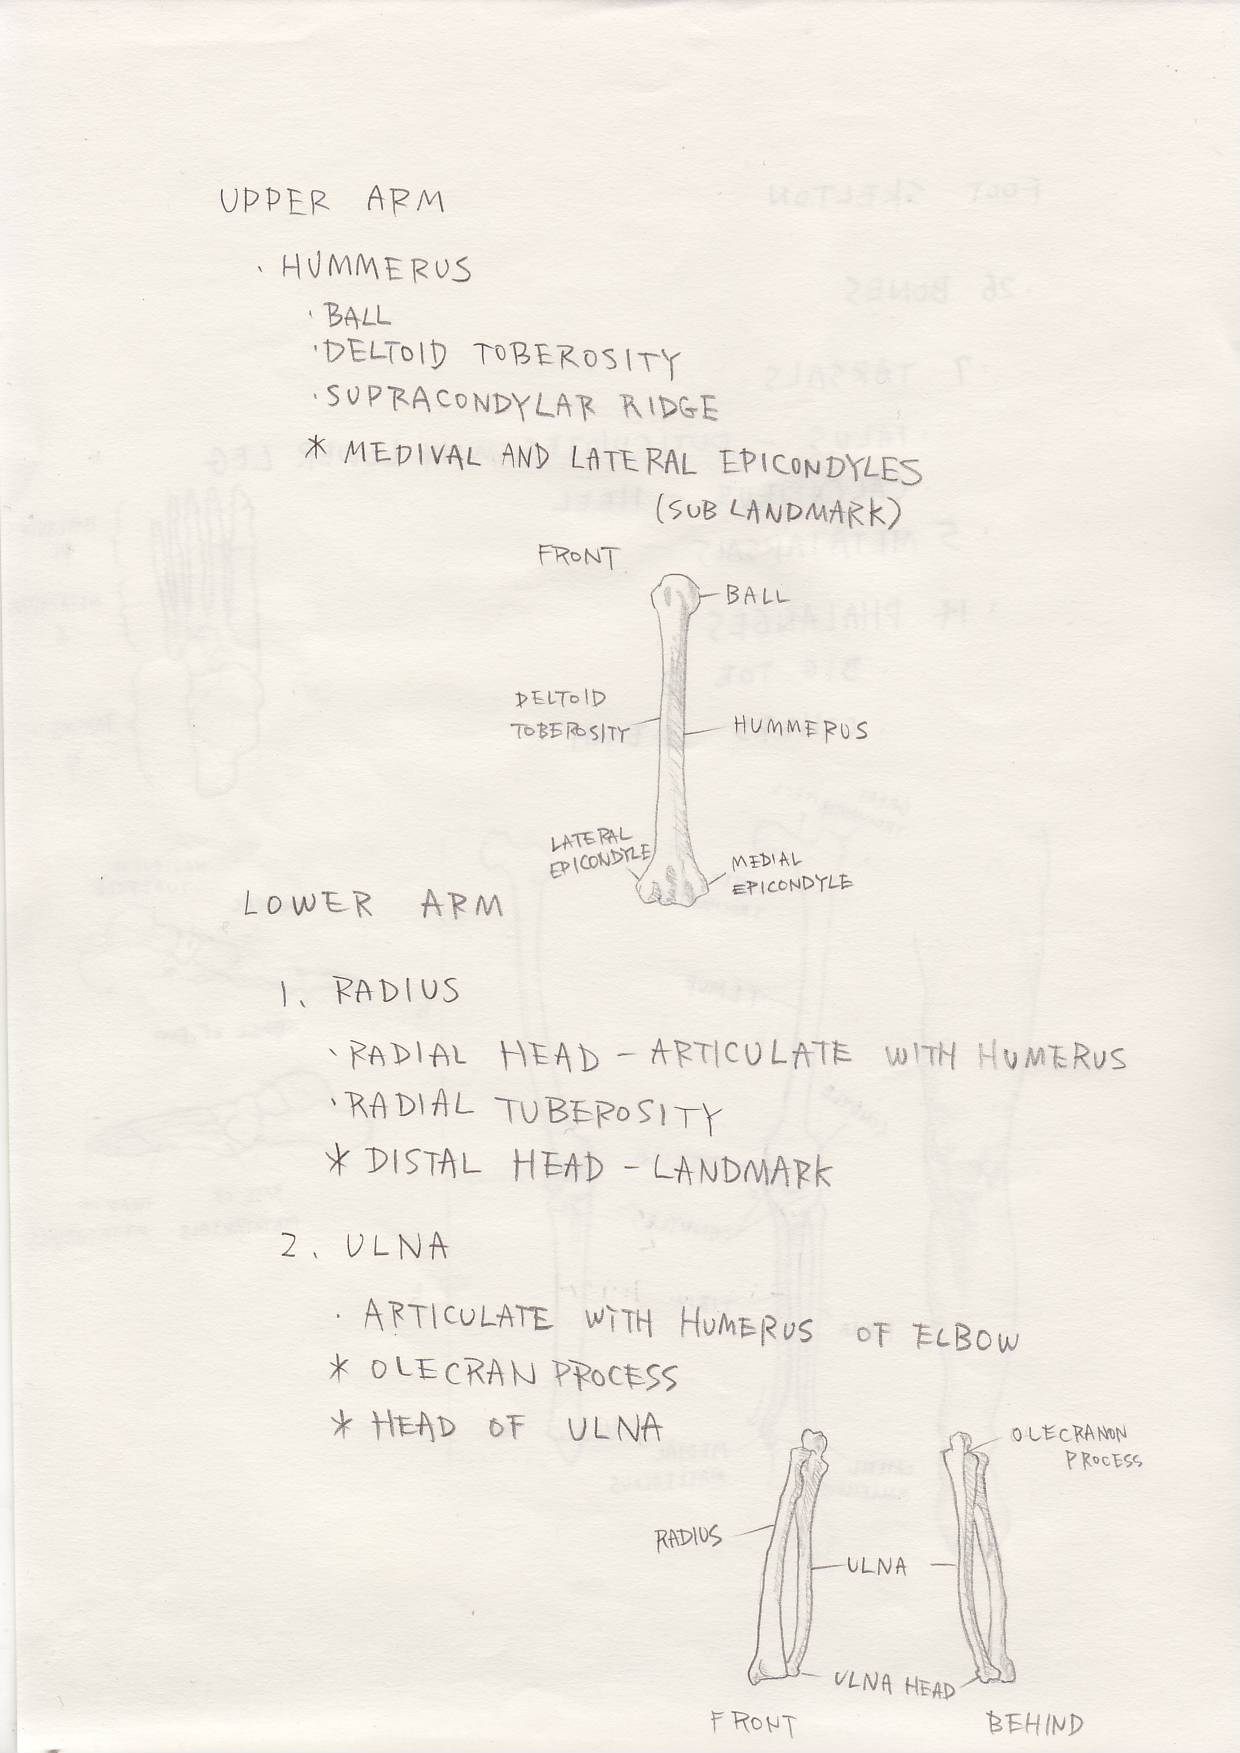 UPPER ARM
· HUMMERUS
· BALL
· DELTOID TOBEROSITY
· SUPRACONDYLAR RIDGE
* MEDIVAL AND LATERAL EPICONDYLES
(SUB LANDMARK)
FRONT
BALL
DELTOID
TOBEROSITY
HUMMERUS
LATERAL
EPICONDYLE
MEDIAL
EPICONDYLE
LOWER ARM
1. RADIUS
· RADIAL HEAD - ARTICULATE WITH HUMERUS
· RADIAL TUBEROSITY
* DISTAL HEAD - LANDMARK
2. ULNA
· ARTICULATE WITH HUMERUS OF ELBOW
* OLECRAN PROCESS
* HEAD OF ULNA
OLECRANON
PROCESS
RADIUS
ULNA
ULNA HEAD
FRONT
BEHIND
FOOT SKELTON
· 26 BONES
· 7 TARSALS
· 14 PHALANGES